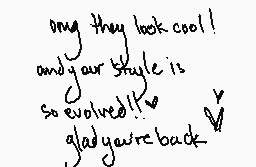 omg they look cool!
and your style is
so evolved!! ♥
glad you're back ♥